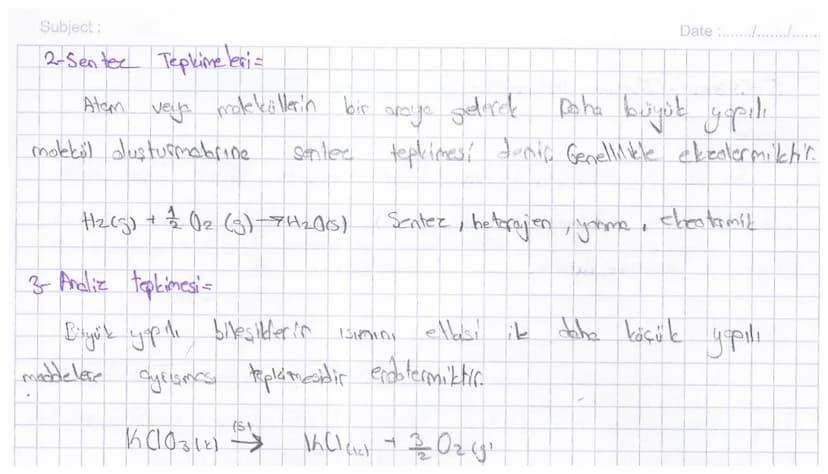 Subject :
Date :......../......../........
2-Sentez Tepkimeleri=
Atom veya moleküllerin bir araya gelerek Daha büyük yapılı
molekül oluşturmalarına sentez tepkimesi denir. Genellikle ekzotermiktir.
H2(g) + 1/2 O2 (g) → H2O(s) Sentez, heterojen, yanma, ekzotermik
3- Analiz tepkimesi=
Büyük yapılı bileşiklerin ısının etkisi ile daha küçük yapılı
maddelere ayrışması tepkimesidir endotermiktir.
KClO3(k) (ısı)→ KCl(k) + 3/2 O2(g)